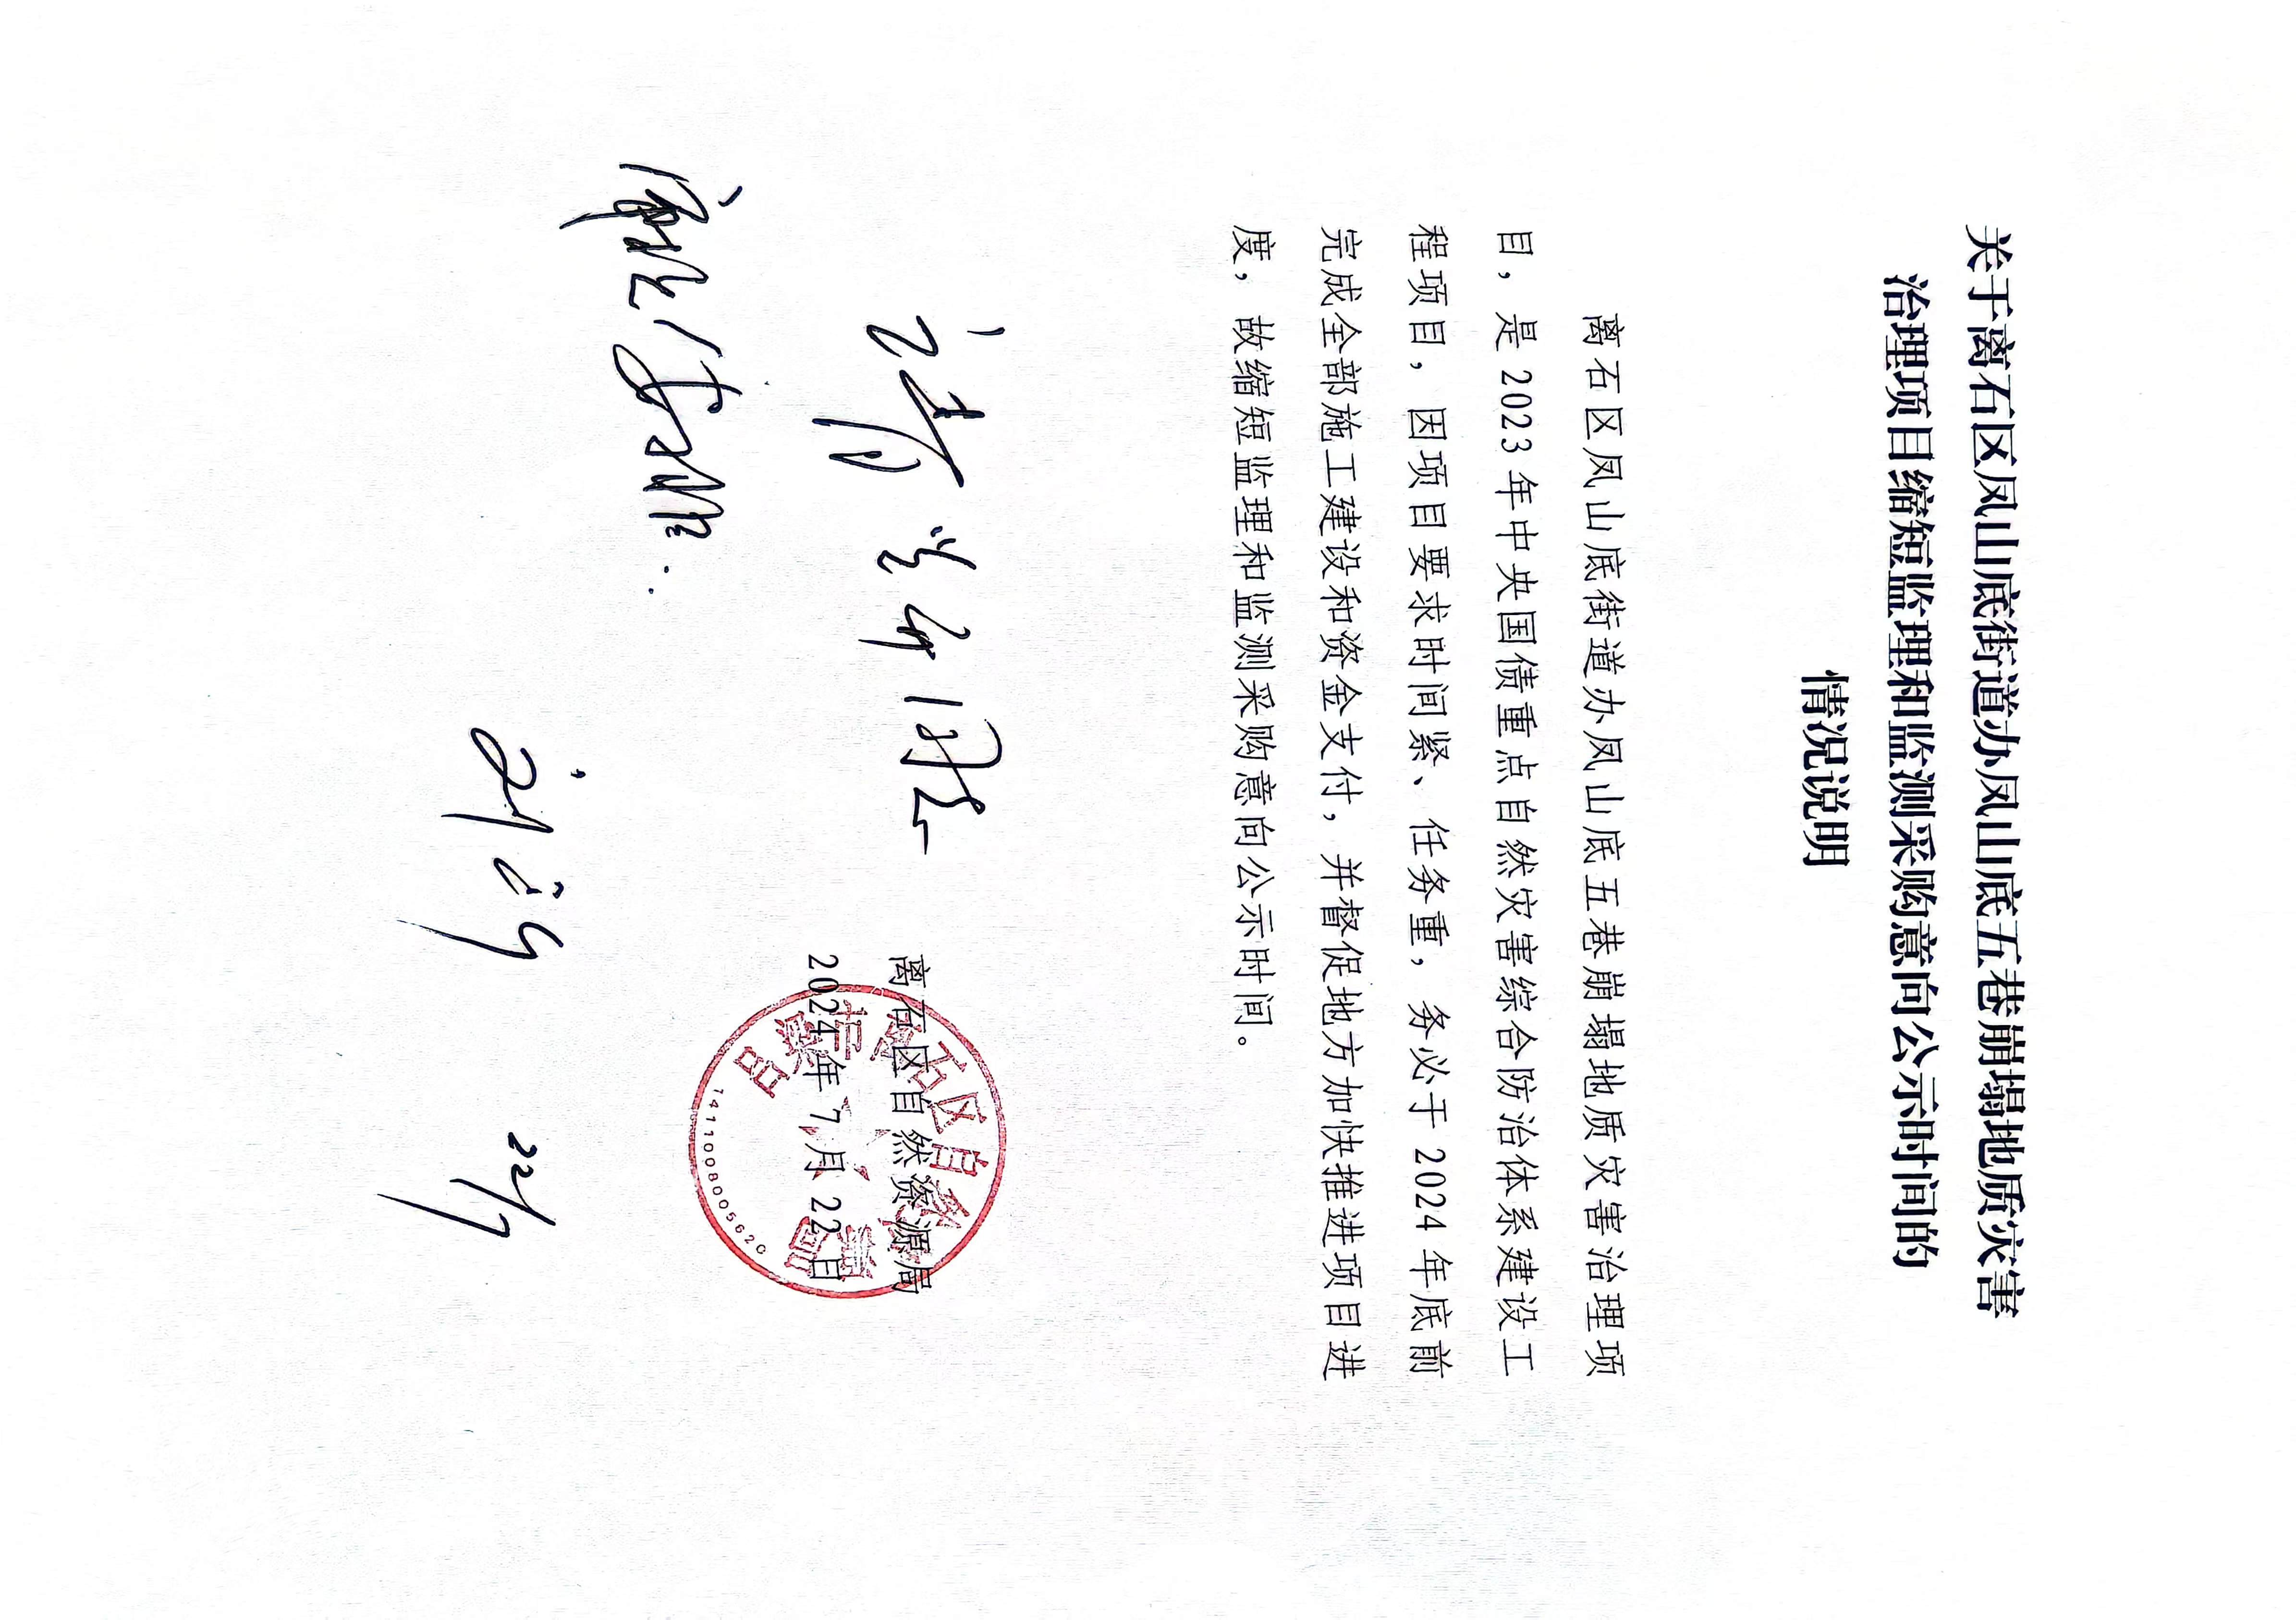 关于离石区凤山底街道办凤山底五巷崩塌地质灾害
治理项目缩短监理和监测采购意向公示时间的
情况说明
离石区凤山底街道办凤山底五巷崩塌地质灾害治理项
目，是 2023 年中央国债重点自然灾害综合防治体系建设工
程项目，因项目要求时间紧、任务重，务必于 2024 年底前
完成全部施工建设和资金支付，并督促地方加快推进项目进
度，故缩短监理和监测采购意向公示时间。
离石区自然资源局
2024年 7月 22日
吕梁市离石区自然资源局